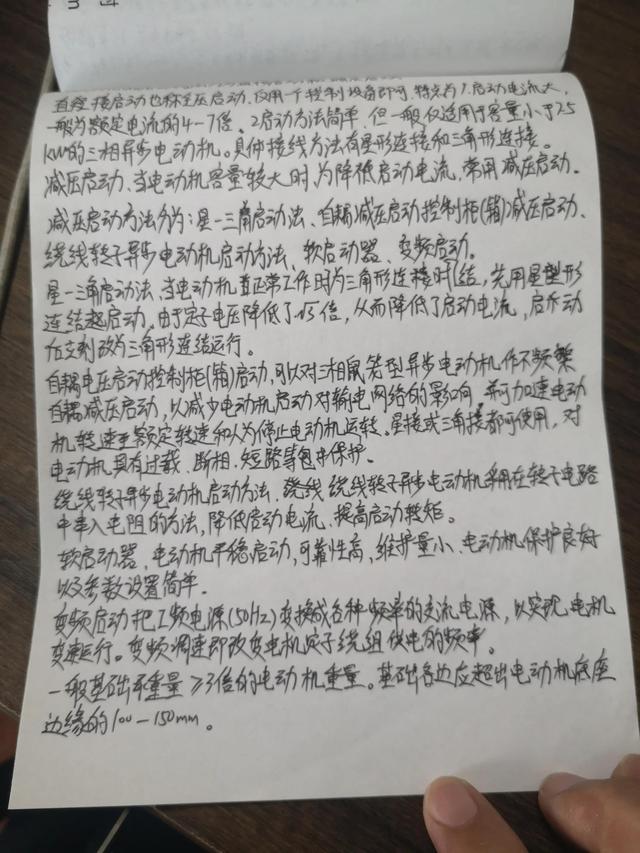 直接启动也称全压启动.仅用一个控制设备即可.特点为1.启动电流大,
一般为额定电流的4-7倍。2启动方法简单.但一般仅适用于容量小于7.5
KW的三相异步电动机。具体接线方法有星形连接和三角形连接。
减压启动、当电动机容量较大时.为降低启动电流,常用减压启动.
减压启动方法分为:星-三角启动法、自耦减压启动控制柜(箱)减压启动、
绕线转子异步电动机启动方法、软启动器、变频启动。
星-三角启动法、当电动机正常工作时为三角形连接时结,先用星型形
连结起启动.由于定子电压降低了√3倍,从而降低了启动电流,启动
立刻改为三角形连结运行。
自耦电压启动控制柜(箱)启动,可以对三相鼠笼型异步电动机作不频繁
自耦减压启动,以减少电动机启动对输电网络的影响,并可加速电动
机转速至额定转速和人为停止电动机运转。星接或三角接都可使用,对
电动机具有过载、断相.短路等保护。
绕线转子异步电动机启动方法、绕线 绕线转子异步电动机采用在转子电路
中串入电阻的方法,降低启动电流、提高启动转矩。
软启动器、电动机平稳启动,可靠性高,维护量小、电动机保护良好
以及参数设置简单.
变频启动把工频电源(50Hz)变换成各种频率的交流电源,以实现电机
变速运行。变频调速即改变电机定子绕组供电的频率。
一般基础重量≥3倍的电动机重量。基础各边应超出电动机底座
边缘的100-150mm。